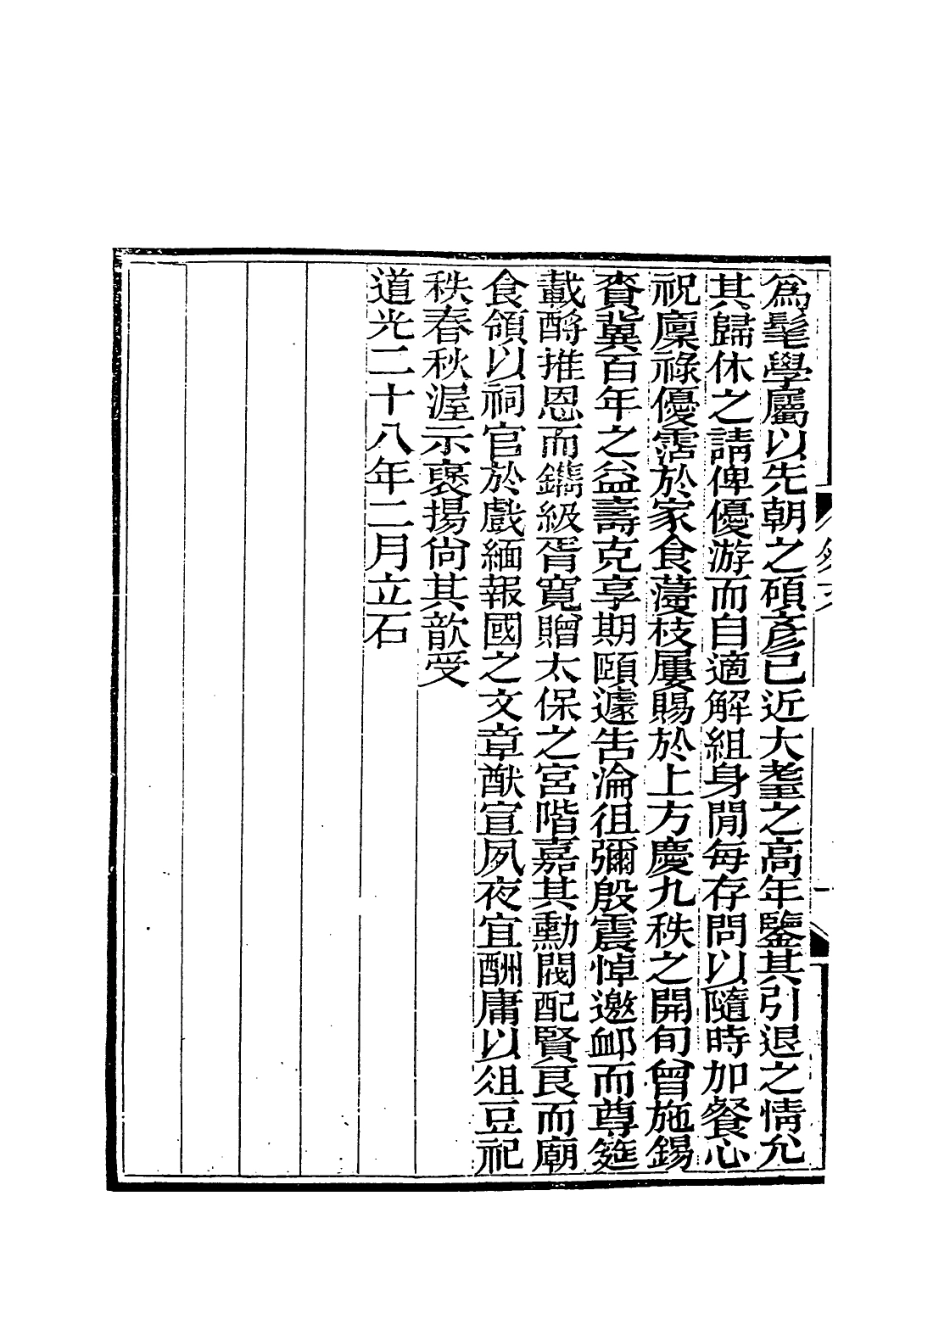 爲髦學屬以先朝之碩彥已近大耋之高年鑒其引退之情允
其歸休之請俾優游而自適解組身閒每存問以隨時加餐心
祝廩祿優霑於家食薓枝屢賜於上方慶九秩之開旬曾施錫
賚冀百年之益壽克享期頤遽告淪徂彌殷震悼邀卹而尊筵
載酹推恩而鐫級胥寬贈太保之宮階嘉其勳閥配賢良而廟
食領以祠官於戲緬報國之文章猷宣夙夜宜酬庸以俎豆祀
秩春秋渥示襃揚尙其歆受
道光二十八年二月立石